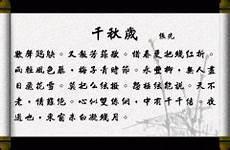 千秋歲 張先
數聲鶗鴂。又報芳菲歇。惜春更把殘紅折。
雨輕風色暴，梅子青時節。永豐柳，無人盡
日飛花雪。莫把么絃撥。怨極絃能說。天不
老，情難絕。心似雙絲網，中有千千結。夜
過也，東窗未白凝殘月。